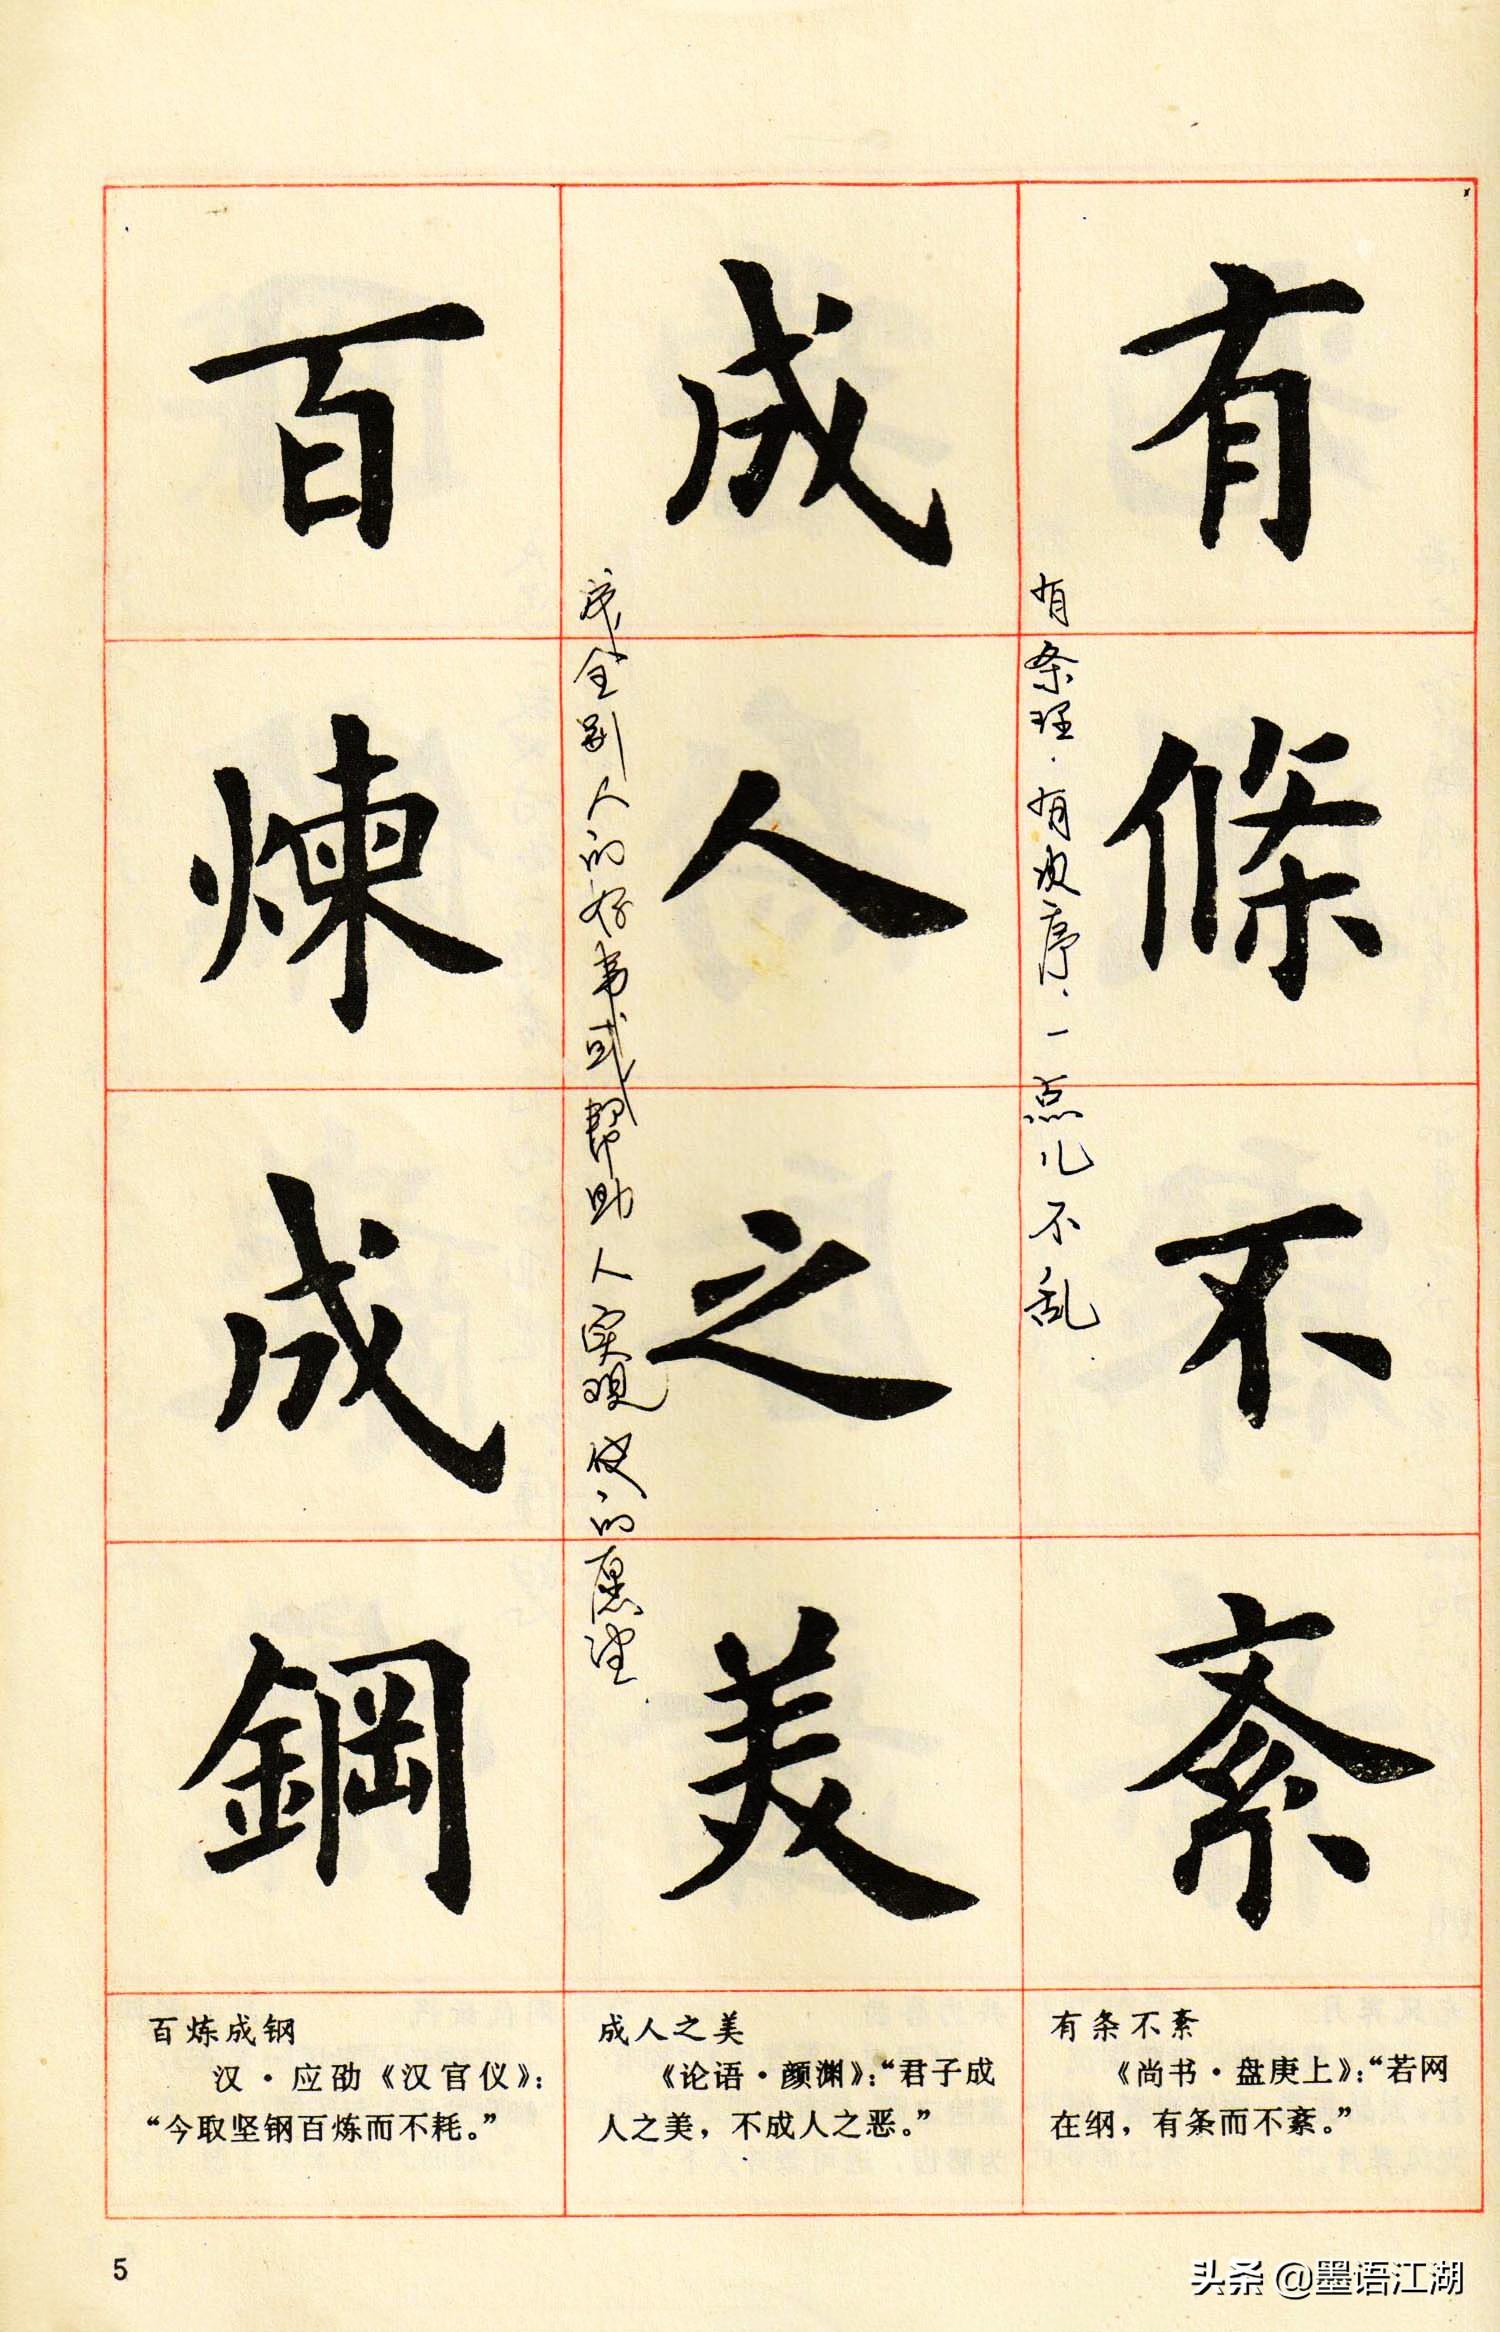 有條不紊
有条理.有次序.一点儿不乱.
成人之美
成全别人的好事或帮助人实现他的愿望.
百煉成鋼
有条不紊
《尚书·盘庚上》：“若网
在纲，有条而不紊。”
成人之美
《论语·颜渊》：“君子成
人之美，不成人之恶。”
百炼成钢
汉·应劭《汉官仪》：
“今取坚钢百炼而不耗。”
5
头条 @墨语江湖